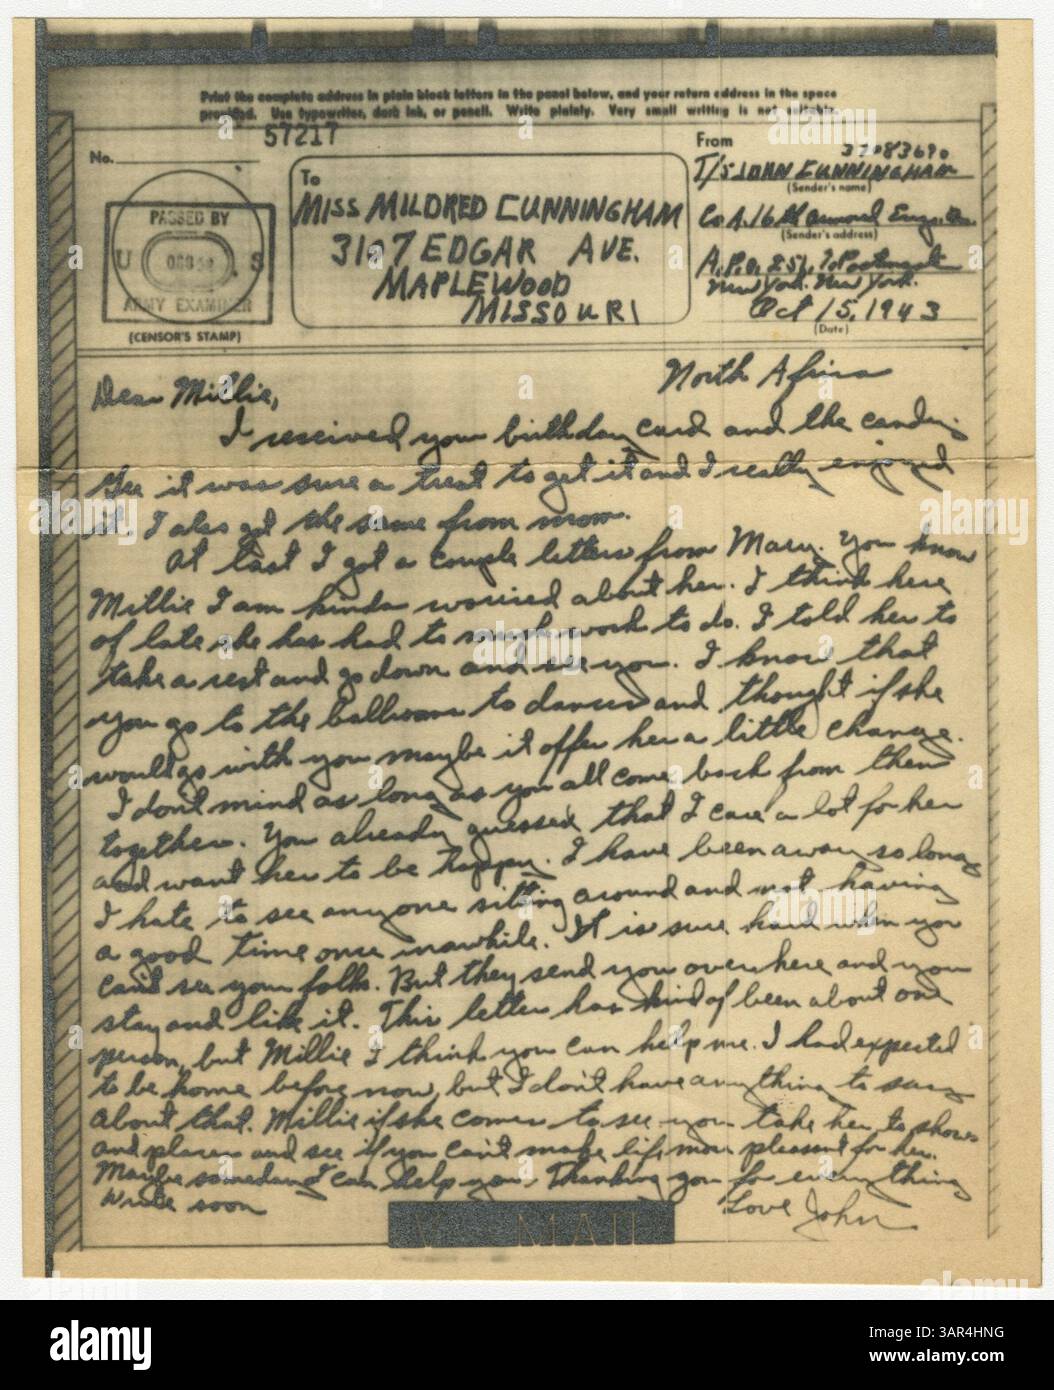 Print the complete address in plain block letters in the panel below, and your return address in the space
provided. Use typewriter, dark ink, or pencil. Write plainly. Very small writing is not suitable.
57217
No.
PASSED BY
U S
ARMY EXAMINER
(CENSOR'S STAMP)
To
MISS MILDRED CUNNINGHAM
3107 EDGAR AVE.
MAPLEWOOD
MISSOURI
From
37083690
T/5 JOHN CUNNINGHAM
(Sender's name)
Co A. 16th Armored Engr. Bn.
(Sender's address)
A.P.O. 251, % Postmaster
New York. New York.
Oct 15, 1943
(Date)
North Africa
Dear Millie,
I received your birthday card and the candy.
Gee it was sure a treat to get it and I really enjoyed
it. I also got the same from mom.
At last I got a couple letters from Mary. You know
Millie I am kinda worried about her. I think here
of late she has had to much work to do. I told her to
take a rest and go down and see you. I know that
you go to the ballroom to dances and thought if she
would go with you maybe it offer her a little change.
I don't mind as long as you all come back from them
together. You already guessed that I care a lot for her
and want her to be happy. I have been away so long
I hate to see anyone sitting around and not having
a good time once inawhile. It is sure hard when you
can't see your folks. But they send you over here and you
stay and like it. This letter has kind of been about one
person, but Millie I think you can help me. I had expected
to be home before now, but I don't have anything to say
about that. Millie if she comes to see you take her to shows
and places and see if you can't make life more pleasant for her.
Maybe someday I can help you. Thanking you for everything
Write soon
Love John
V···—MAIL
alamy
Image ID: 3AR4HNG
www.alamy.com